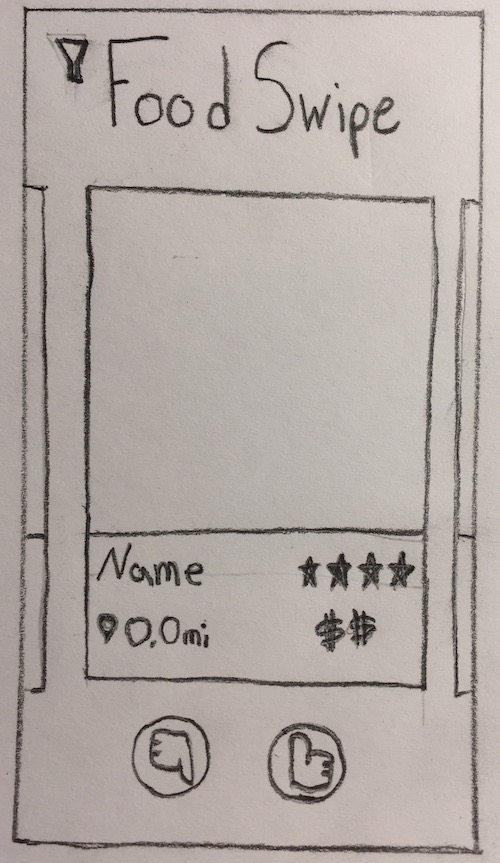 Food Swipe
Name ★★★★
0.0mi $$